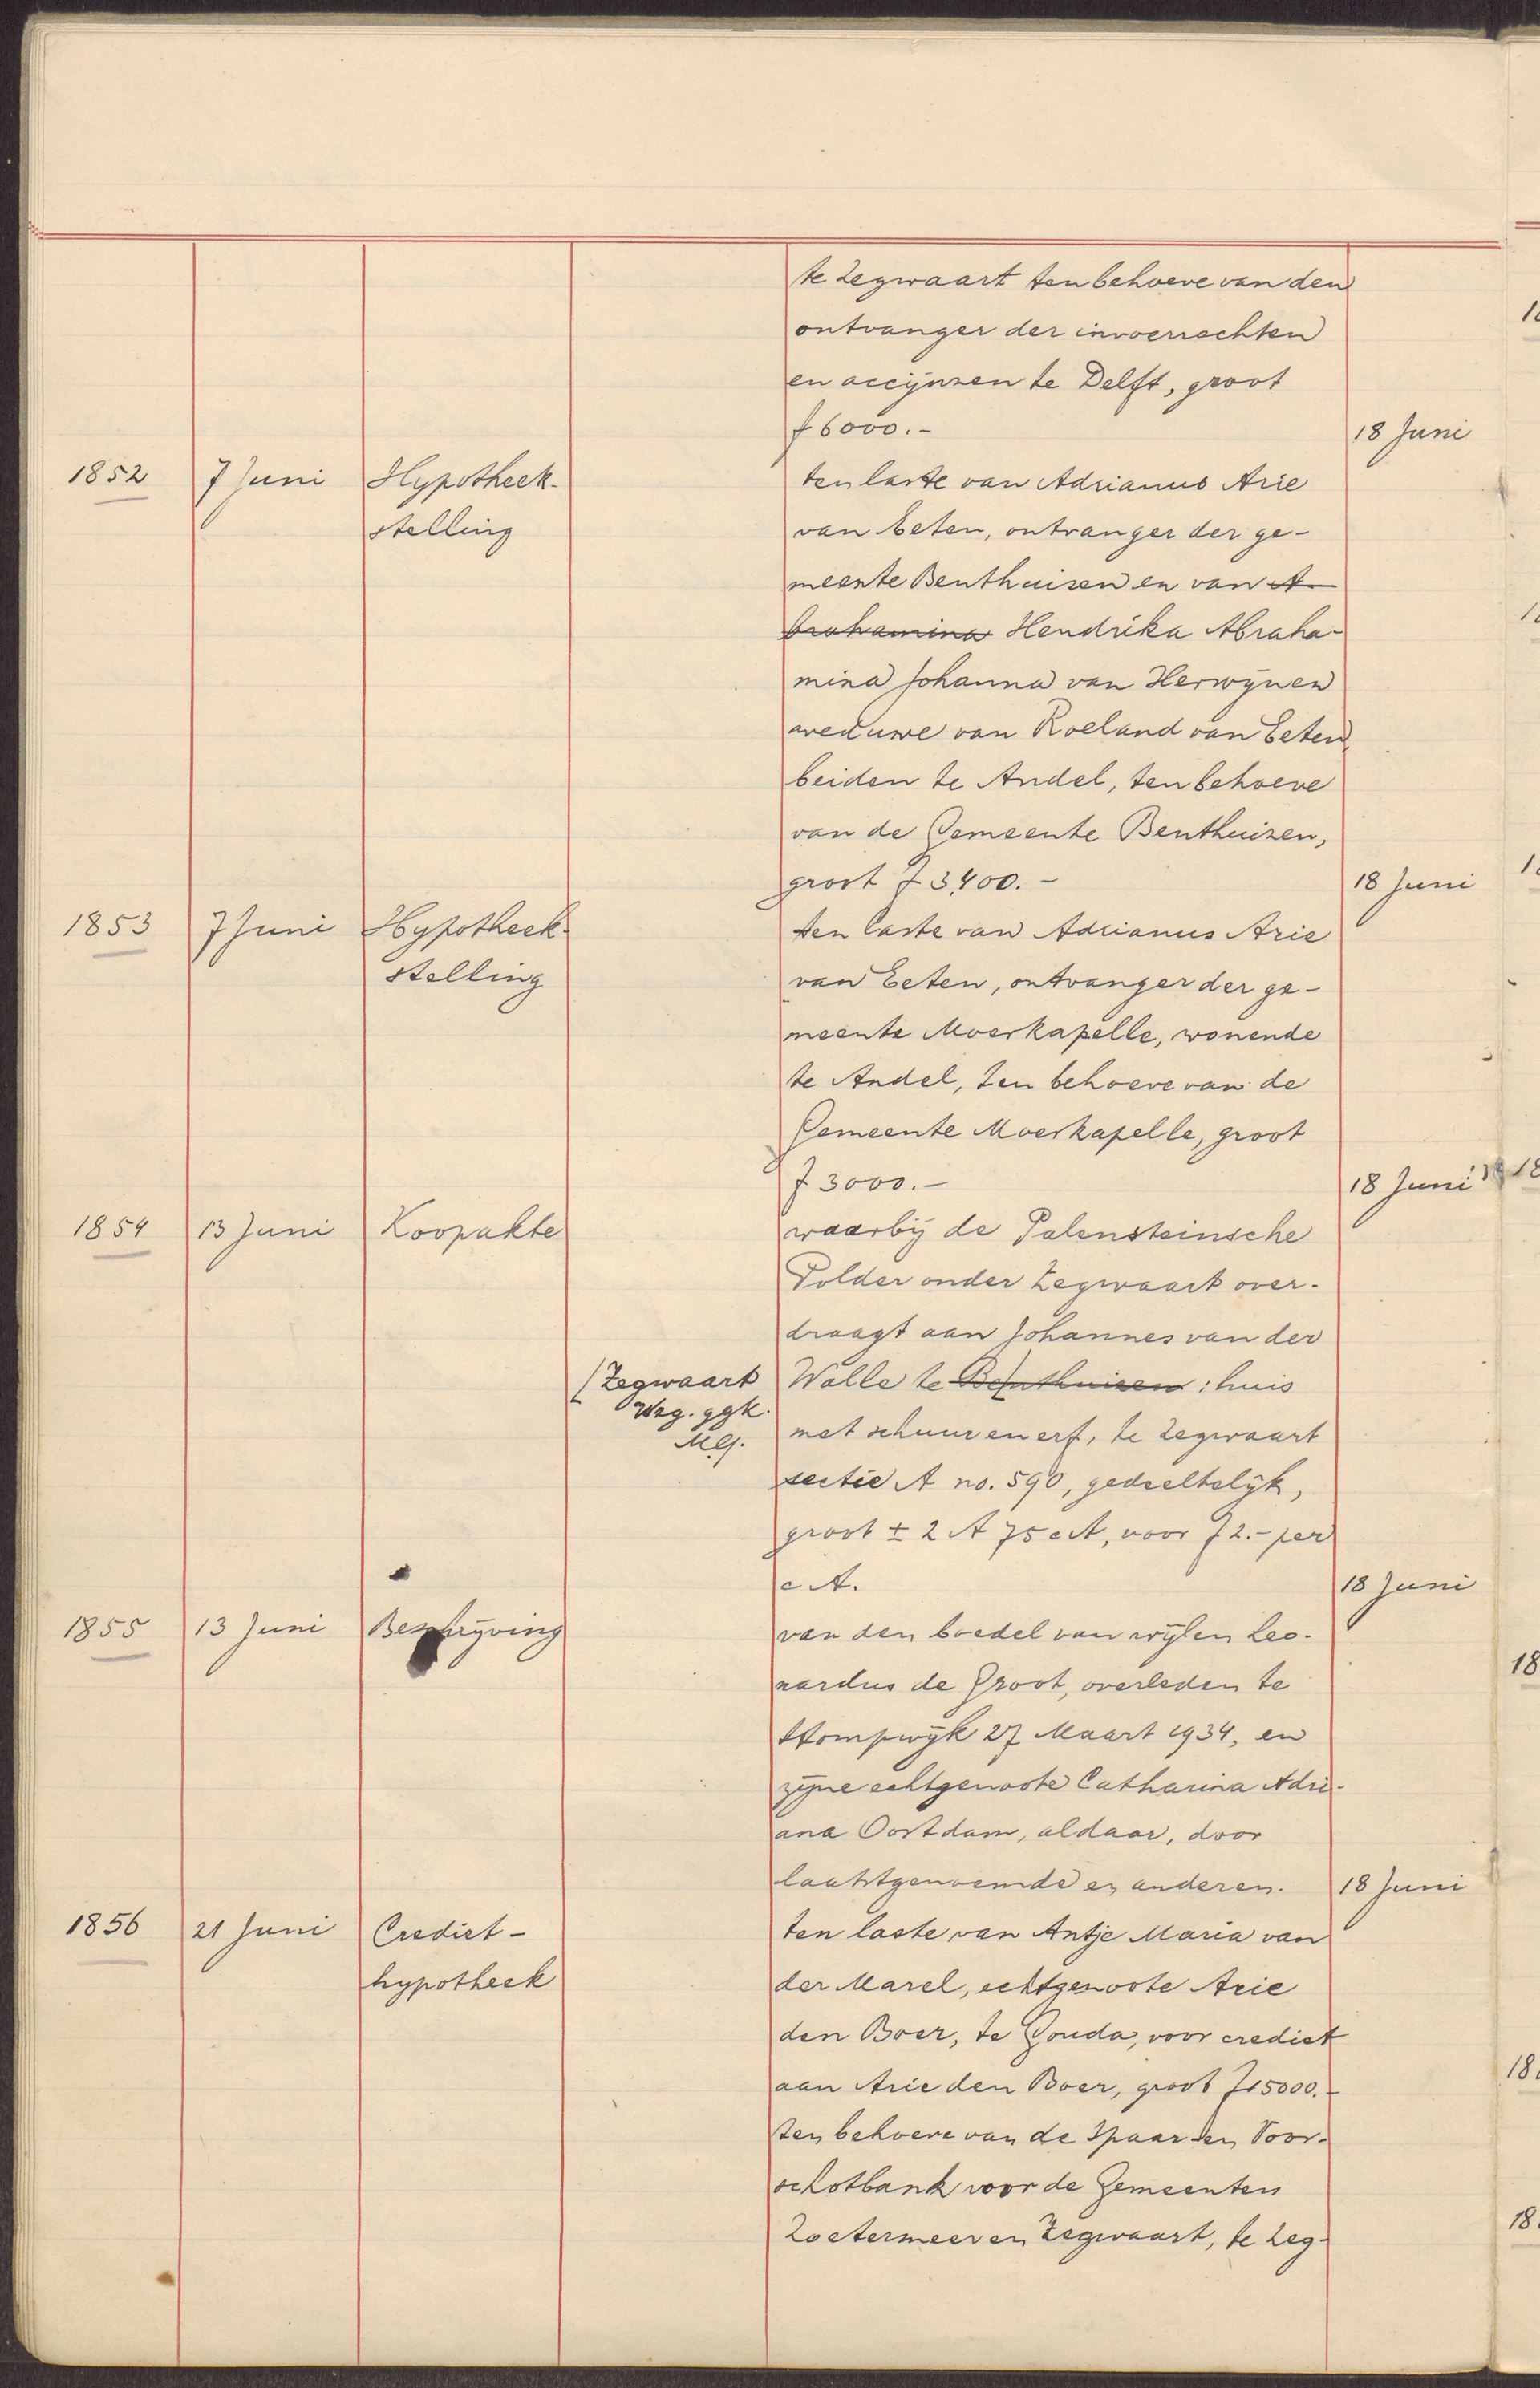 te Zegwaart ten behoeve van den
ontvanger der invoerrechten
en accijnzen te Delft, groot
f 6000.-
18 Juni
1852
7 Juni
Hypotheek-
stelling
ten laste van Adrianus Arie
van Eeten, ontvanger der ge-
meente Benthuizen en van A-
brahamina Hendrika Abraha-
mina Johanna van Herwijnen
weduwe van Roeland van Eeten
beiden te Andel, ten behoeve
van de Gemeente Benthuizen,
groot f 3400.-
18 Juni
1853
7 Juni
Hypotheek-
stelling
ten laste van Adrianus Arie
van Eeten, ontvanger der ge-
meente Moerkapelle, wonende
te Andel, ten behoeve van de
Gemeente Moerkapelle, groot
f 3000.-
18 Juni
1854
13 Juni
Koopakte
waarbij de Palensteinsche
Polder onder Zegwaart over-
draagt aan Johannes van der
(Zegwaart
Wzg. ggk.
Walle te Benthuizen : huis
met schuur en erf, te Zegwaart
sectie A no. 590, gedeeltelijk,
groot ± 2 A 75 cA, voor f 2.- per
cA.
18 Juni
1855
13 Juni
Beschrijving
van den boedel van wijlen Leo-
nardus de Groot, overleden te
Stompwijk 27 Maart 1934, en
zijne echtgenoote Catharina Adri-
ana Oostdam, aldaar, door
laatstgenoemde en anderen.
18 Juni
1856
21 Juni
Crediet-
hypotheek
ten laste van Antje Maria van
der Marel, echtgenoote Arie
den Boer, te Gouda, voor crediet
aan Arie den Boer, groot f 15000.-
ten behoeve van de Spaar en Voor-
schotbank voor de Gemeenten
Zoetermeer en Zegwaart, te Zeg-